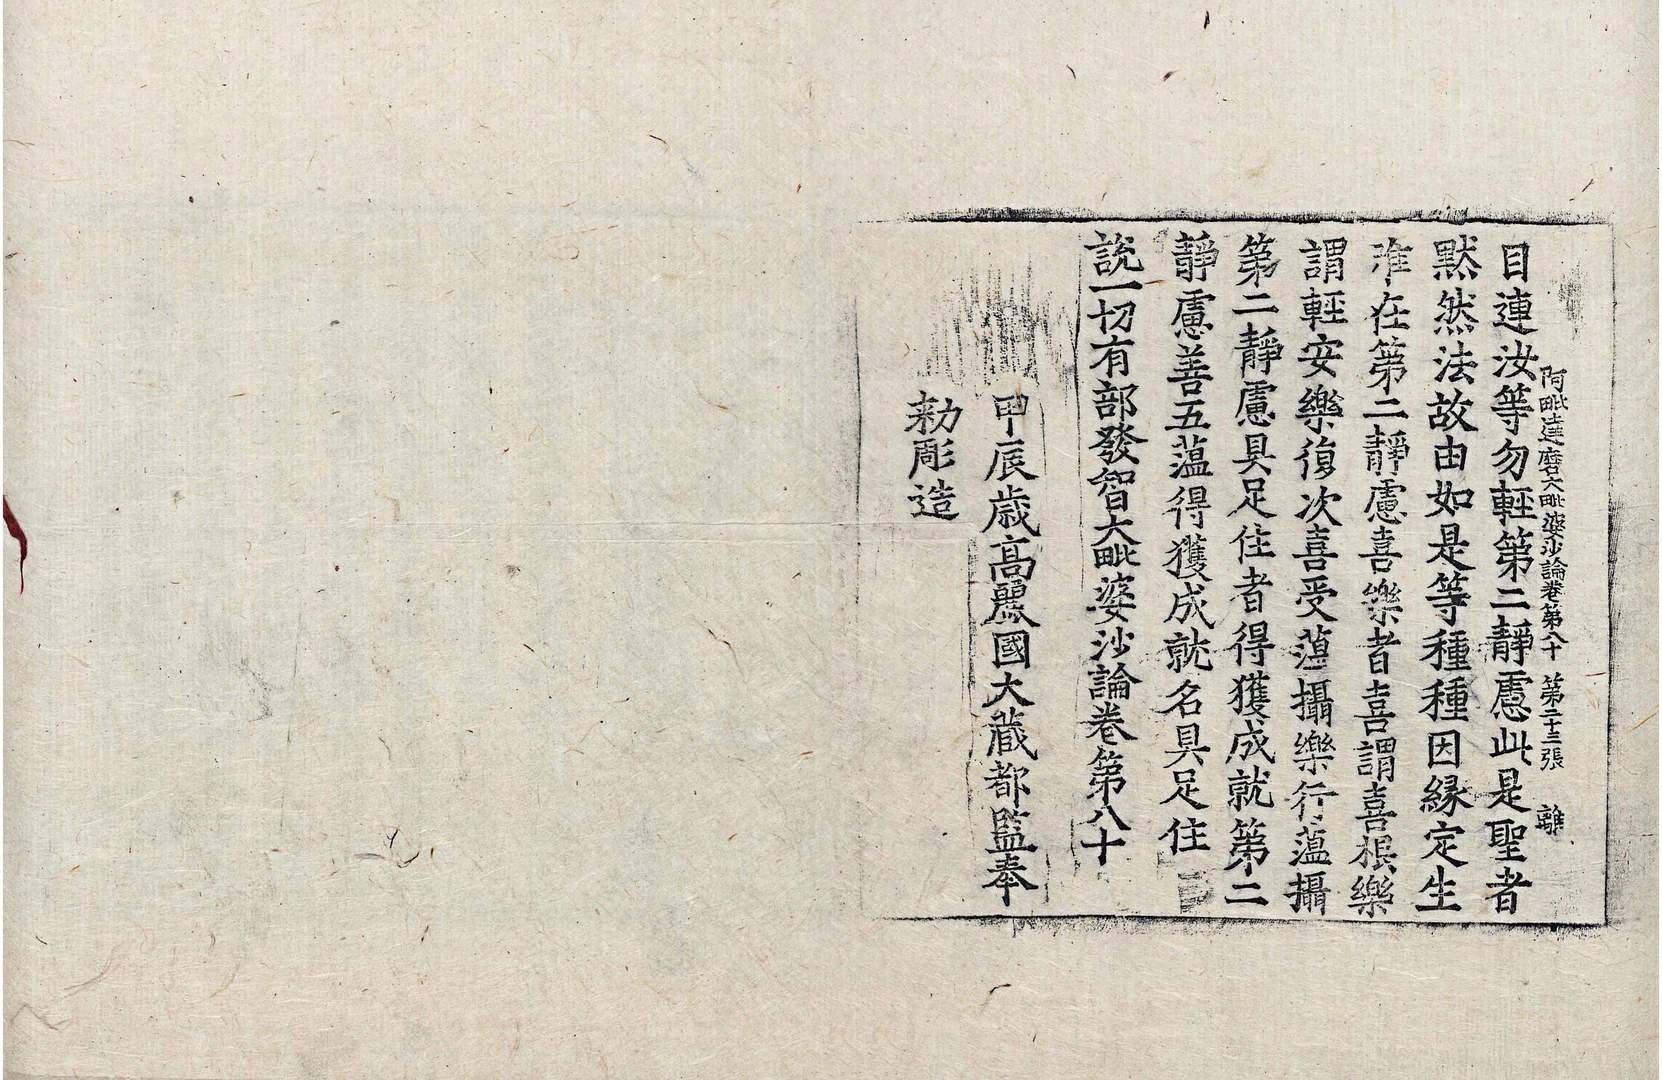 阿毗達磨大毗婆沙論卷第八十 第二十三張 離
目連汝等勿輕第二靜慮此是聖者
默然法故由如是等種種因緣定生
唯在第二靜慮喜樂者喜謂喜根樂
謂輕安樂復次喜受蘊攝樂行蘊攝
第二靜慮具足住者得獲成就第二
靜慮善五蘊得獲成就名具足住
說一切有部發智大毗婆沙論卷第八十
甲辰歲高麗國大藏都監奉
勅彫造